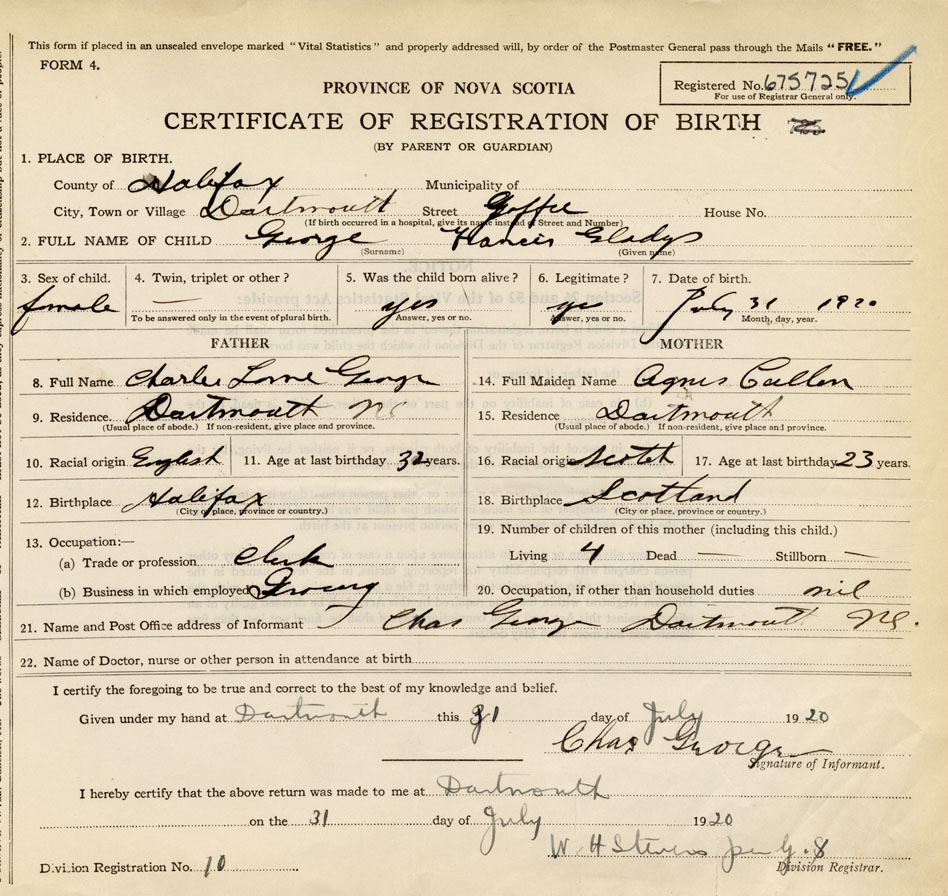 This form if placed in an unsealed envelope marked "Vital Statistics" and properly addressed will, by order of the Postmaster General pass through the Mails "FREE."
FORM 4.
Registered No. 675725
For use of Registrar General only.
PROVINCE OF NOVA SCOTIA
CERTIFICATE OF REGISTRATION OF BIRTH
(BY PARENT OR GUARDIAN)
1. PLACE OF BIRTH.
County of Halifax Municipality of
City, Town or Village Dartmouth Street House No.
(If birth occurred in a hospital, give its name instead of Street and Number)
2. FULL NAME OF CHILD George Francis Gladys
(Surname) (Given name)
3. Sex of child. 4. Twin, triplet or other? 5. Was the child born alive? 6. Legitimate? 7. Date of birth.
female — yes yes July 31 1920
To be answered only in the event of plural birth. Answer, yes or no. Answer, yes or no. Month, day, year.
FATHER MOTHER
8. Full Name Charles Lorne George 14. Full Maiden Name Agnes Cullen
9. Residence. Dartmouth NS 15. Residence Dartmouth
(Usual place of abode.) If non-resident, give place and province. (Usual place of abode.) If non-resident, give place and province.
10. Racial origin English 11. Age at last birthday 32 years. 16. Racial origin Scotch 17. Age at last birthday 23 years.
12. Birthplace Halifax 18. Birthplace Scotland
(City or place, province or country.) (City or place, province or country.)
13. Occupation:— 19. Number of children of this mother (including this child.)
(a) Trade or profession Clerk Living 4 Dead — Stillborn —
(b) Business in which employed Grocery 20. Occupation, if other than household duties nil
21. Name and Post Office address of Informant Chas George Dartmouth NS.
22. Name of Doctor, nurse or other person in attendance at birth
I certify the foregoing to be true and correct to the best of my knowledge and belief.
Given under my hand at Dartmouth this 31 day of July 1920
Chas George
Signature of Informant.
I hereby certify that the above return was made to me at Dartmouth
on the 31 day of July 1920
W. H Stevens
Division Registration No. 10 Division Registrar.